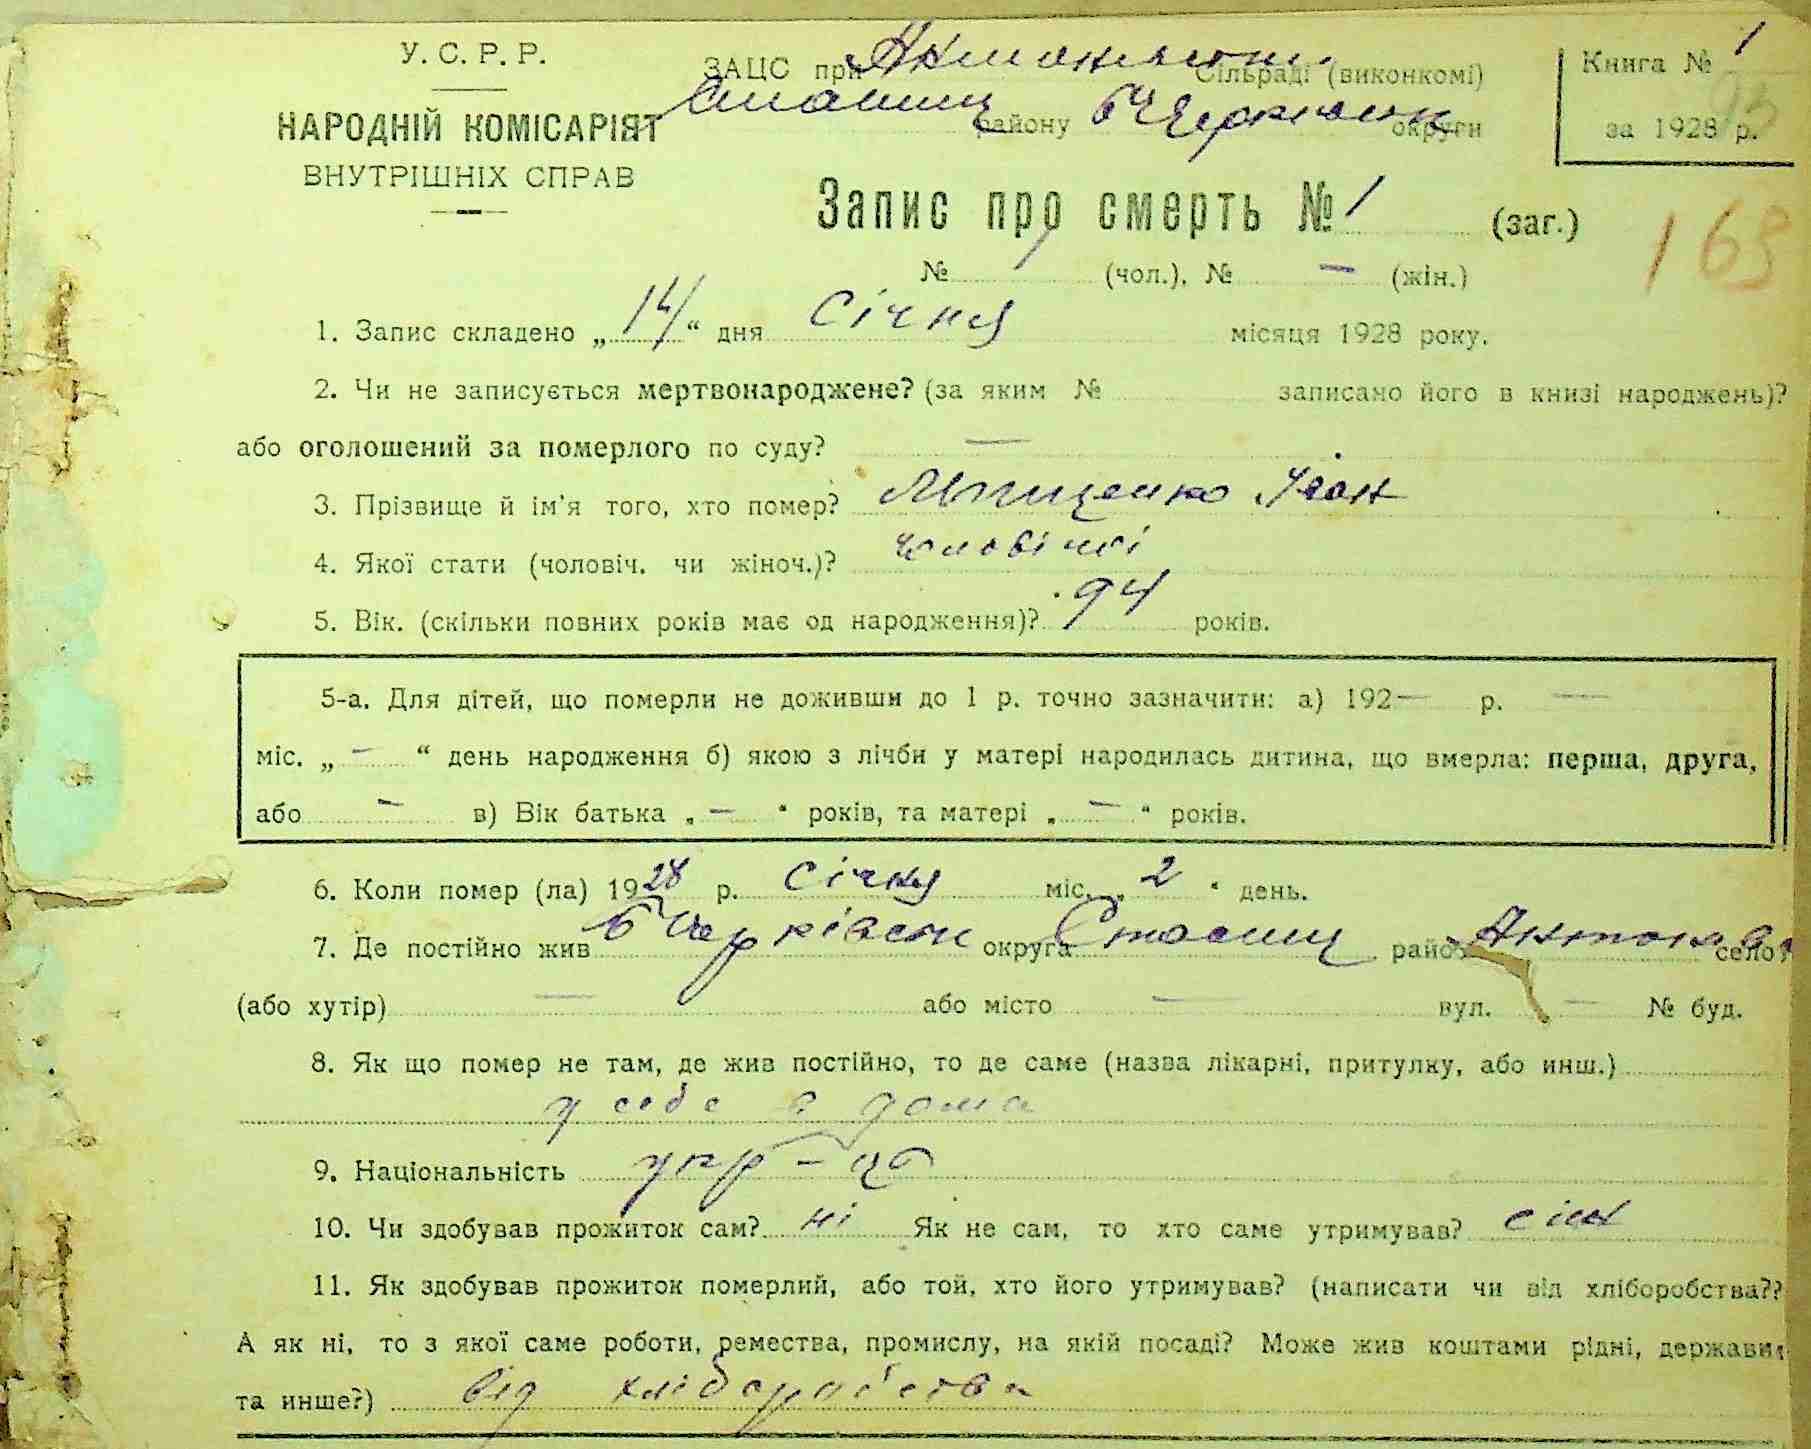 У. С. Р. Р.
НАРОДНІЙ КОМІСАРІЯТ
ВНУТРІШНІХ СПРАВ
ЗАЦС при Сільраді (виконкомі)
району БЧерківськ округи
Книга № 1
за 1928 р.
Запис про смерть № 1 (заг.)
№ 1 (чол.), № — (жін.)
165
1. Запис складено „14“ дня Січня місяця 1928 року.
2. Чи не записується мертвонароджене? (за яким № записано його в книзі народжень)?
або оголошений за померлого по суду? —
3. Прізвище й ім'я того, хто помер? Іван
4. Якої стати (чоловіч. чи жіноч.)? чоловічої
5. Вік. (скільки повних років має од народження)? 94 років.
5-а. Для дітей, що померли не доживши до 1 р. точно зазначити: а) 192— р. —
міс. „ — “ день народження б) якою з лічби у матері народилась дитина, що вмерла: перша, друга,
або — в) Вік батька „ — “ років, та матері „ — “ років.
6. Коли помер (ла) 1928 р. Січня міс. „ 2 “ день.
7. Де постійно жив БЧерківськ округа Ставищ район село
(або хутір) — або місто — вул. — № буд.
8. Як що помер не там, де жив постійно, то де саме (назва лікарні, притулку, або инш.)
у себе в дома
9. Національність укр-ць
10. Чи здобував прожиток сам? ні Як не сам, то хто саме утримував? син
11. Як здобував прожиток померлий, або той, хто його утримував? (написати чи від хліборобства??
А як ні, то з якої саме роботи, ремества, промислу, на якій посаді? Може жив коштами рідні, держави,
та инше?) від хліборобства